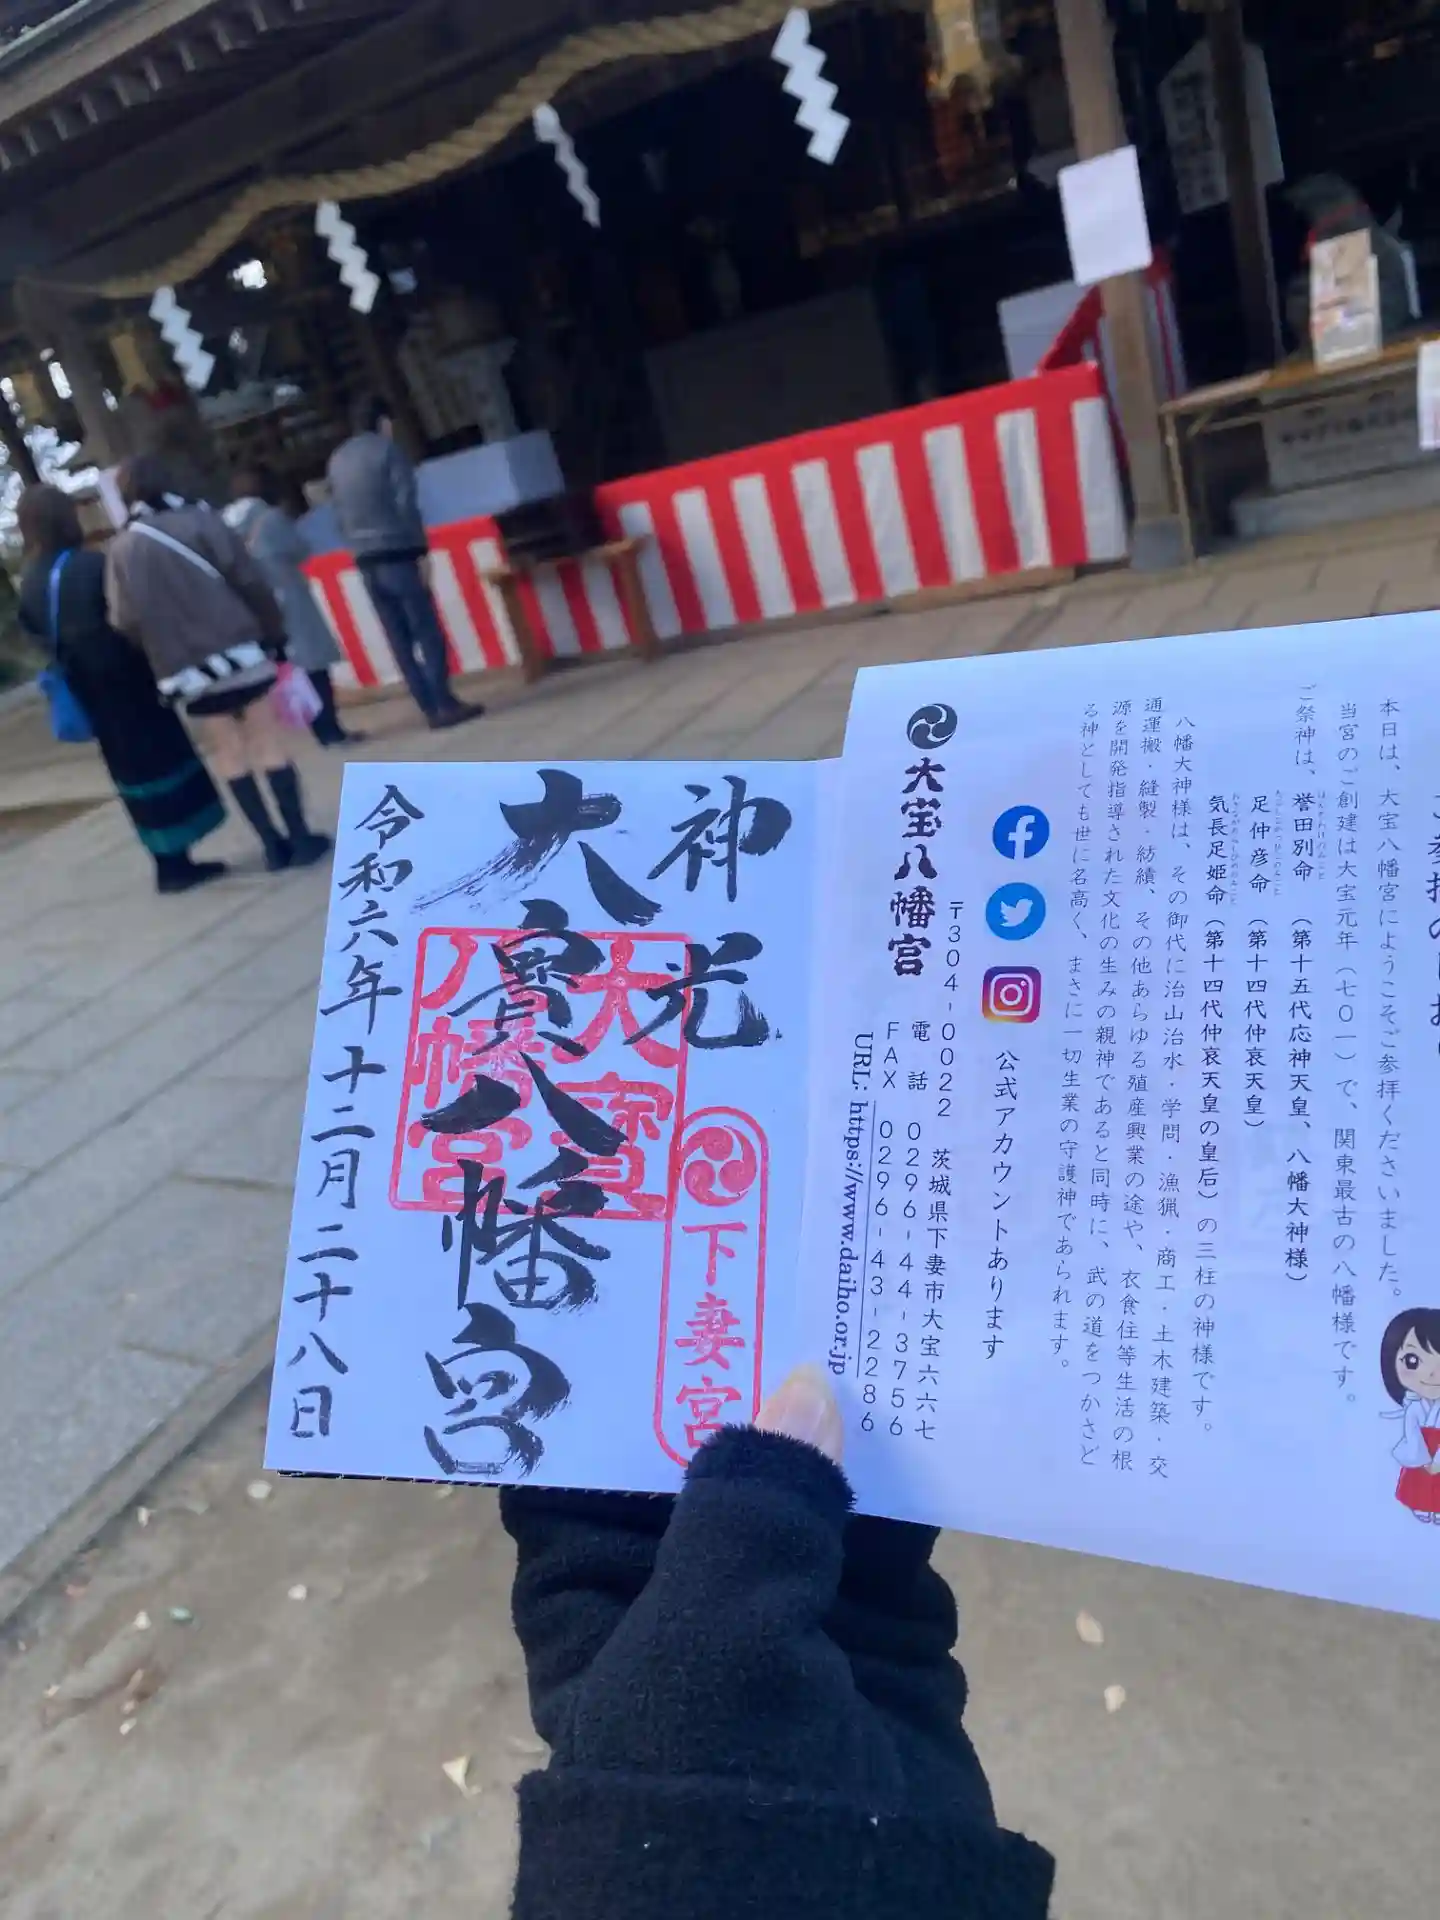 本日は、大宝八幡宮にようこそご参拝くださいました。
当宮のご創建は大宝元年（七〇一）で、関東最古の八幡様です。
ご祭神は、誉田別命（第十五代応神天皇、八幡大神様）
足仲彦命（第十四代仲哀天皇）
気長足姫命（第十四代仲哀天皇の皇后）の三柱の神様です。
八幡大神様は、その御代に治山治水・学問・漁猟・商工・土木建築・交
通運搬・縫製・紡績、その他あらゆる殖産興業の途や、衣食住等生活の根
源を開発指導された文化の生みの親神であると同時に、武の道をつかさど
る神としても世に名高く、まさに一切生業の守護神であられます。
公式アカウントあります
大宝八幡宮
〒304-0022 茨城県下妻市大宝六六七
電話 0296-44-3756
FAX 0296-43-2286
URL: https://www.daiho.or.jp
神光
下妻宮
大寶八幡宮
大寶
八幡宮
令和六年十二月二十八日